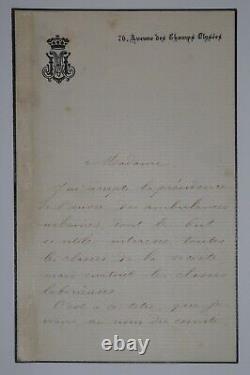 76, Avenue des Champs Elysées
Madame
J'ai accepté la présidence
de l'œuvre des ambulances
urbaines, dont le but
si utile intéresse toutes
les classes de la société
mais surtout les classes
laborieuses
C'est à ce titre, que je
viens au nom du comité